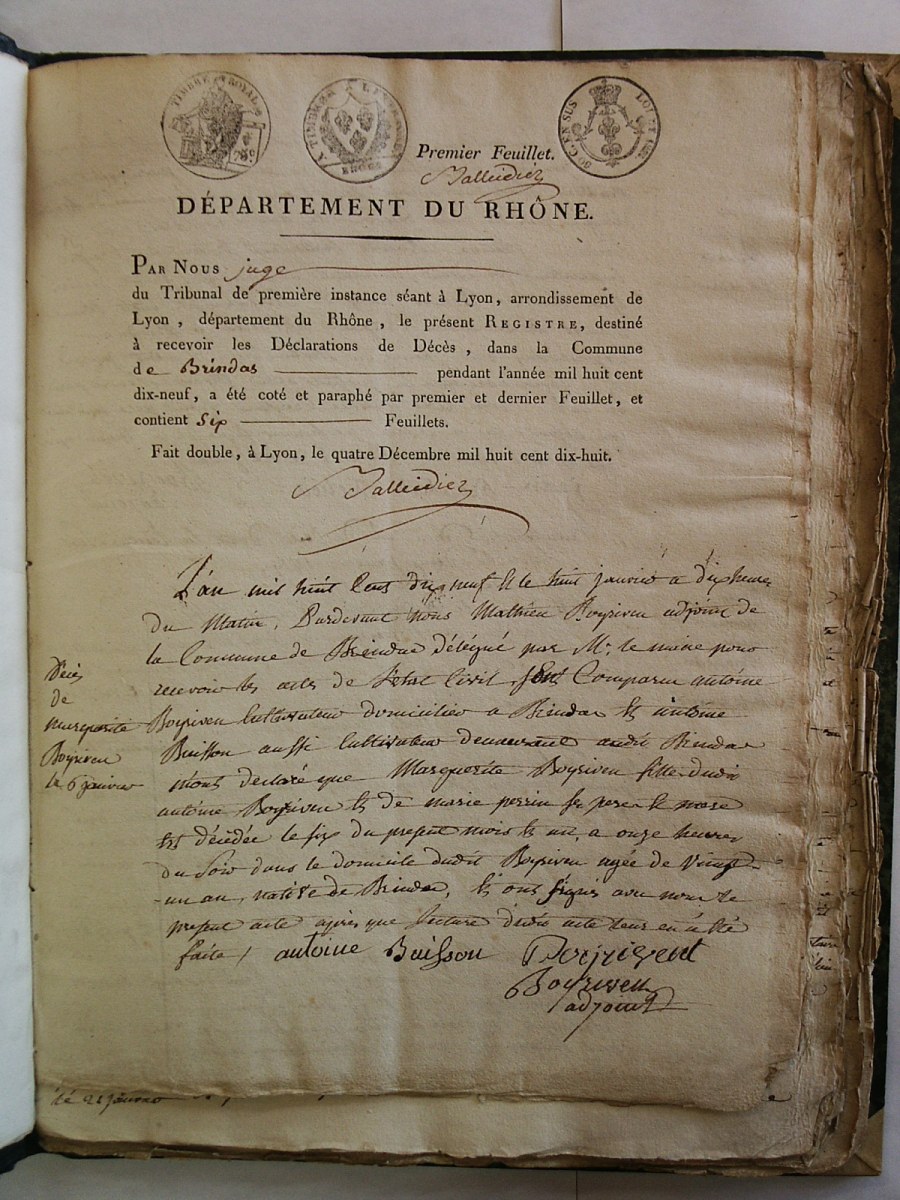 TIMBRE ROYAL
A TIMBRER A L'EXTR
50 C. EN SUS
Premier Feuillet.
DÉPARTEMENT DU RHÔNE.
PAR NOUS juge
du Tribunal de première instance séant à Lyon, arrondissement de
Lyon, département du Rhône, le présent REGISTRE, destiné
à recevoir les Déclarations de Décès, dans la Commune
de Brindas pendant l'année mil huit cent
dix-neuf, a été coté et paraphé par premier et dernier Feuillet, et
contient Six Feuillets.
Fait double, à Lyon, le quatre Décembre mil huit cent dix-huit.
L'an mil huit Cent dix neuf & le huit janvier a dix heures
du Matin, Pardevant Nous Mathieu Boyriven adjoint de
la Commune de Brindas délégué par Mr. le maire pour
recevoir les actes de l'état Civil, Sont Comparu antoine
Boyriven Cultivateur domicilié a Brindas & antoine
Buisson aussi Cultivateur demeurant audit Brindas
n'ont declaré que Marguerite Boyriven fille dudit
antoine Boyriven & de marie perrin ses pere & mere
Est décédée le six du present mois & an, a onze heures
du Soir dans le domicile dudit Boyriven agée de Vingt-
-un an, native de Brindas, & ont signés avec nous le
present acte après que lecture dudit acte leur en a été
faite / antoine Buisson Boyrivent
Boyriven
adjoint
Décès
de
marguerite
Boyriven
le 6 janvier
le 21 janvier